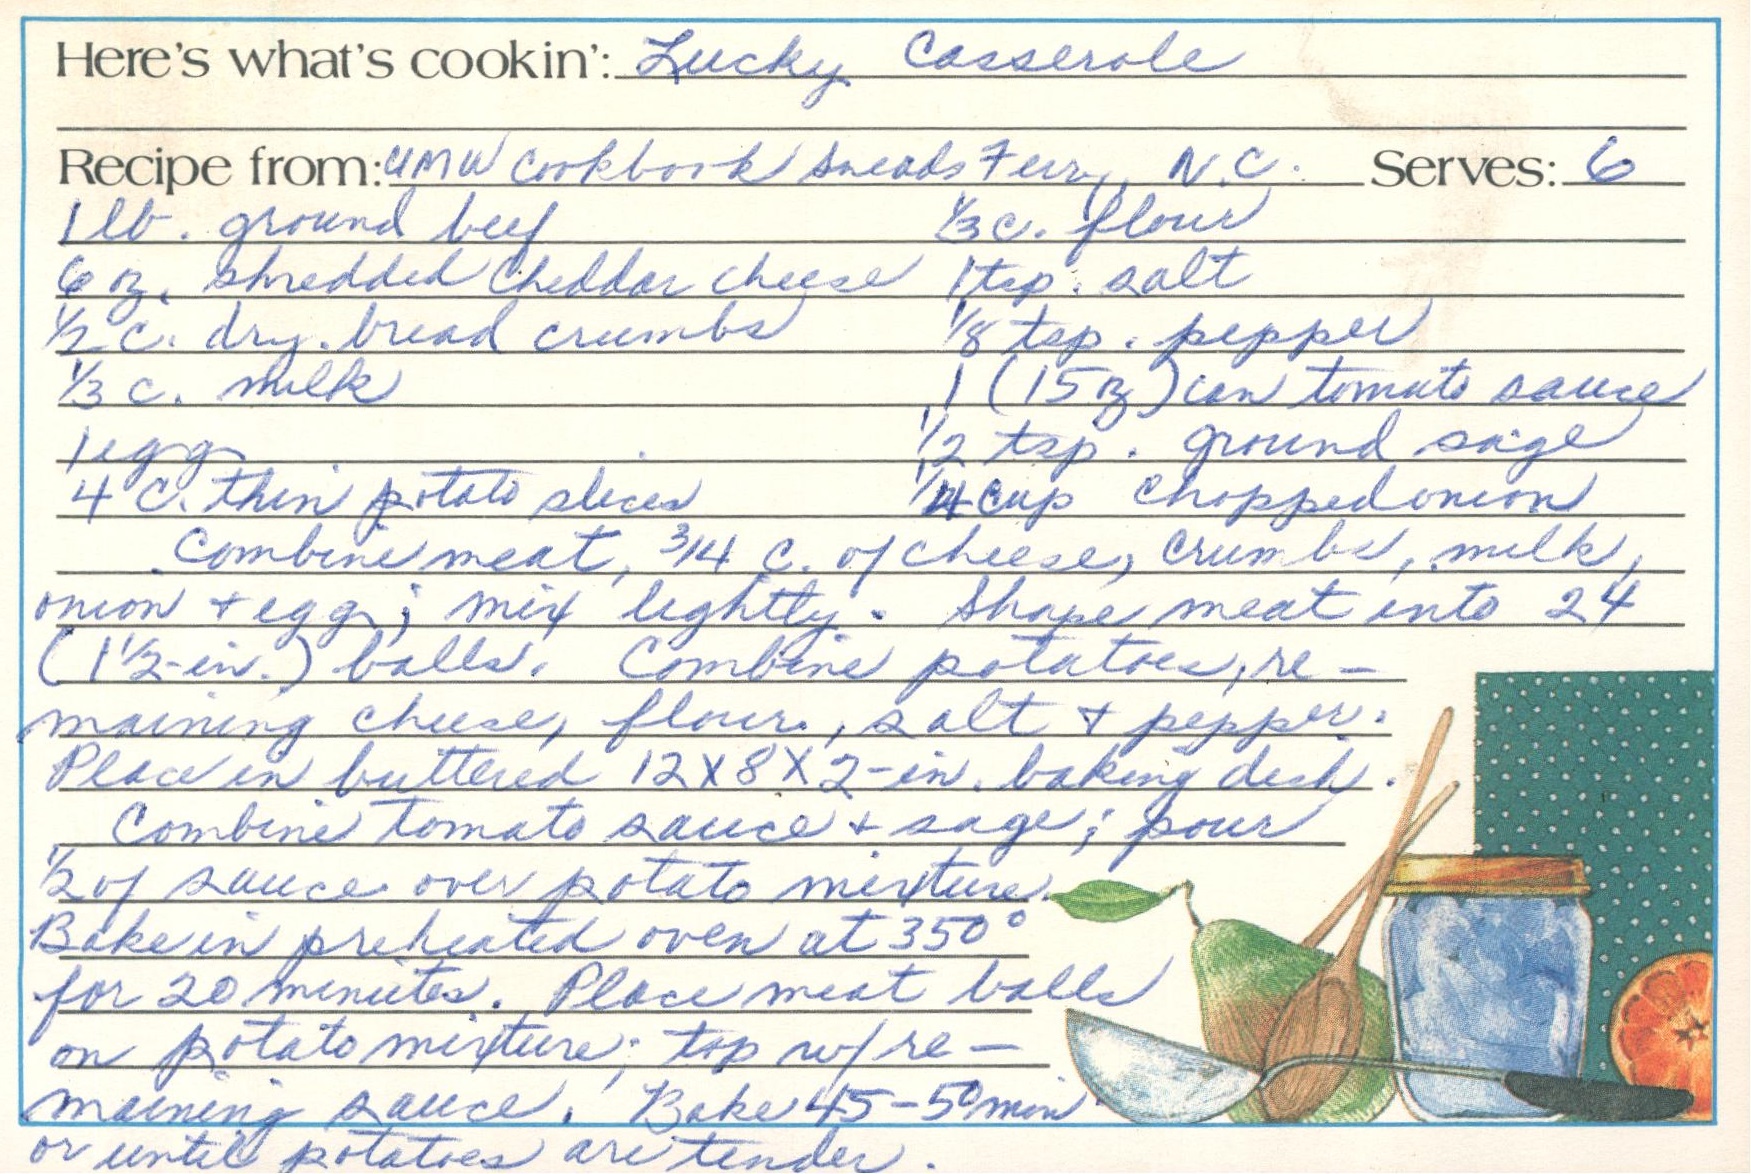 Here's what's cookin': Lucky Casserole
Recipe from: UMW Cookbook Sneads Ferry, N.C. Serves: 6
1 lb. ground beef 1/3 c. flour
6 oz. shredded cheddar cheese 1 tsp. salt
1/2 c. dry bread crumbs 1/8 tsp. pepper
1/3 c. milk 1 (15 oz) can tomato sauce
1 egg 1/2 tsp. ground sage
4 c. thin potato slices 1/4 cup chopped onion
Combine meat, 3/4 c. of cheese, crumbs, milk,
onion + egg; mix lightly. Shape meat into 24
(1 1/2-in.) balls. Combine potatoes, re-
maining cheese, flour, salt + pepper.
Place in buttered 12x8x2-in. baking dish.
Combine tomato sauce + sage; pour
1/2 of sauce over potato mixture.
Bake in preheated oven at 350°
for 20 minutes. Place meat balls
on potato mixture; top w/ re-
maining sauce. Bake 45-50 min
or until potatoes are tender.